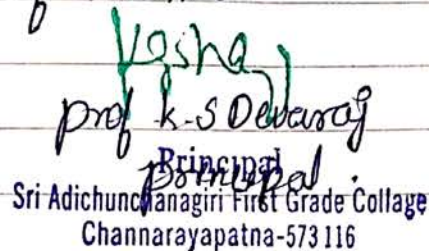 prof k.S Devaraj
principal.
Principal
Sri Adichunchanagiri First Grade Collage
Channarayapatna-573116